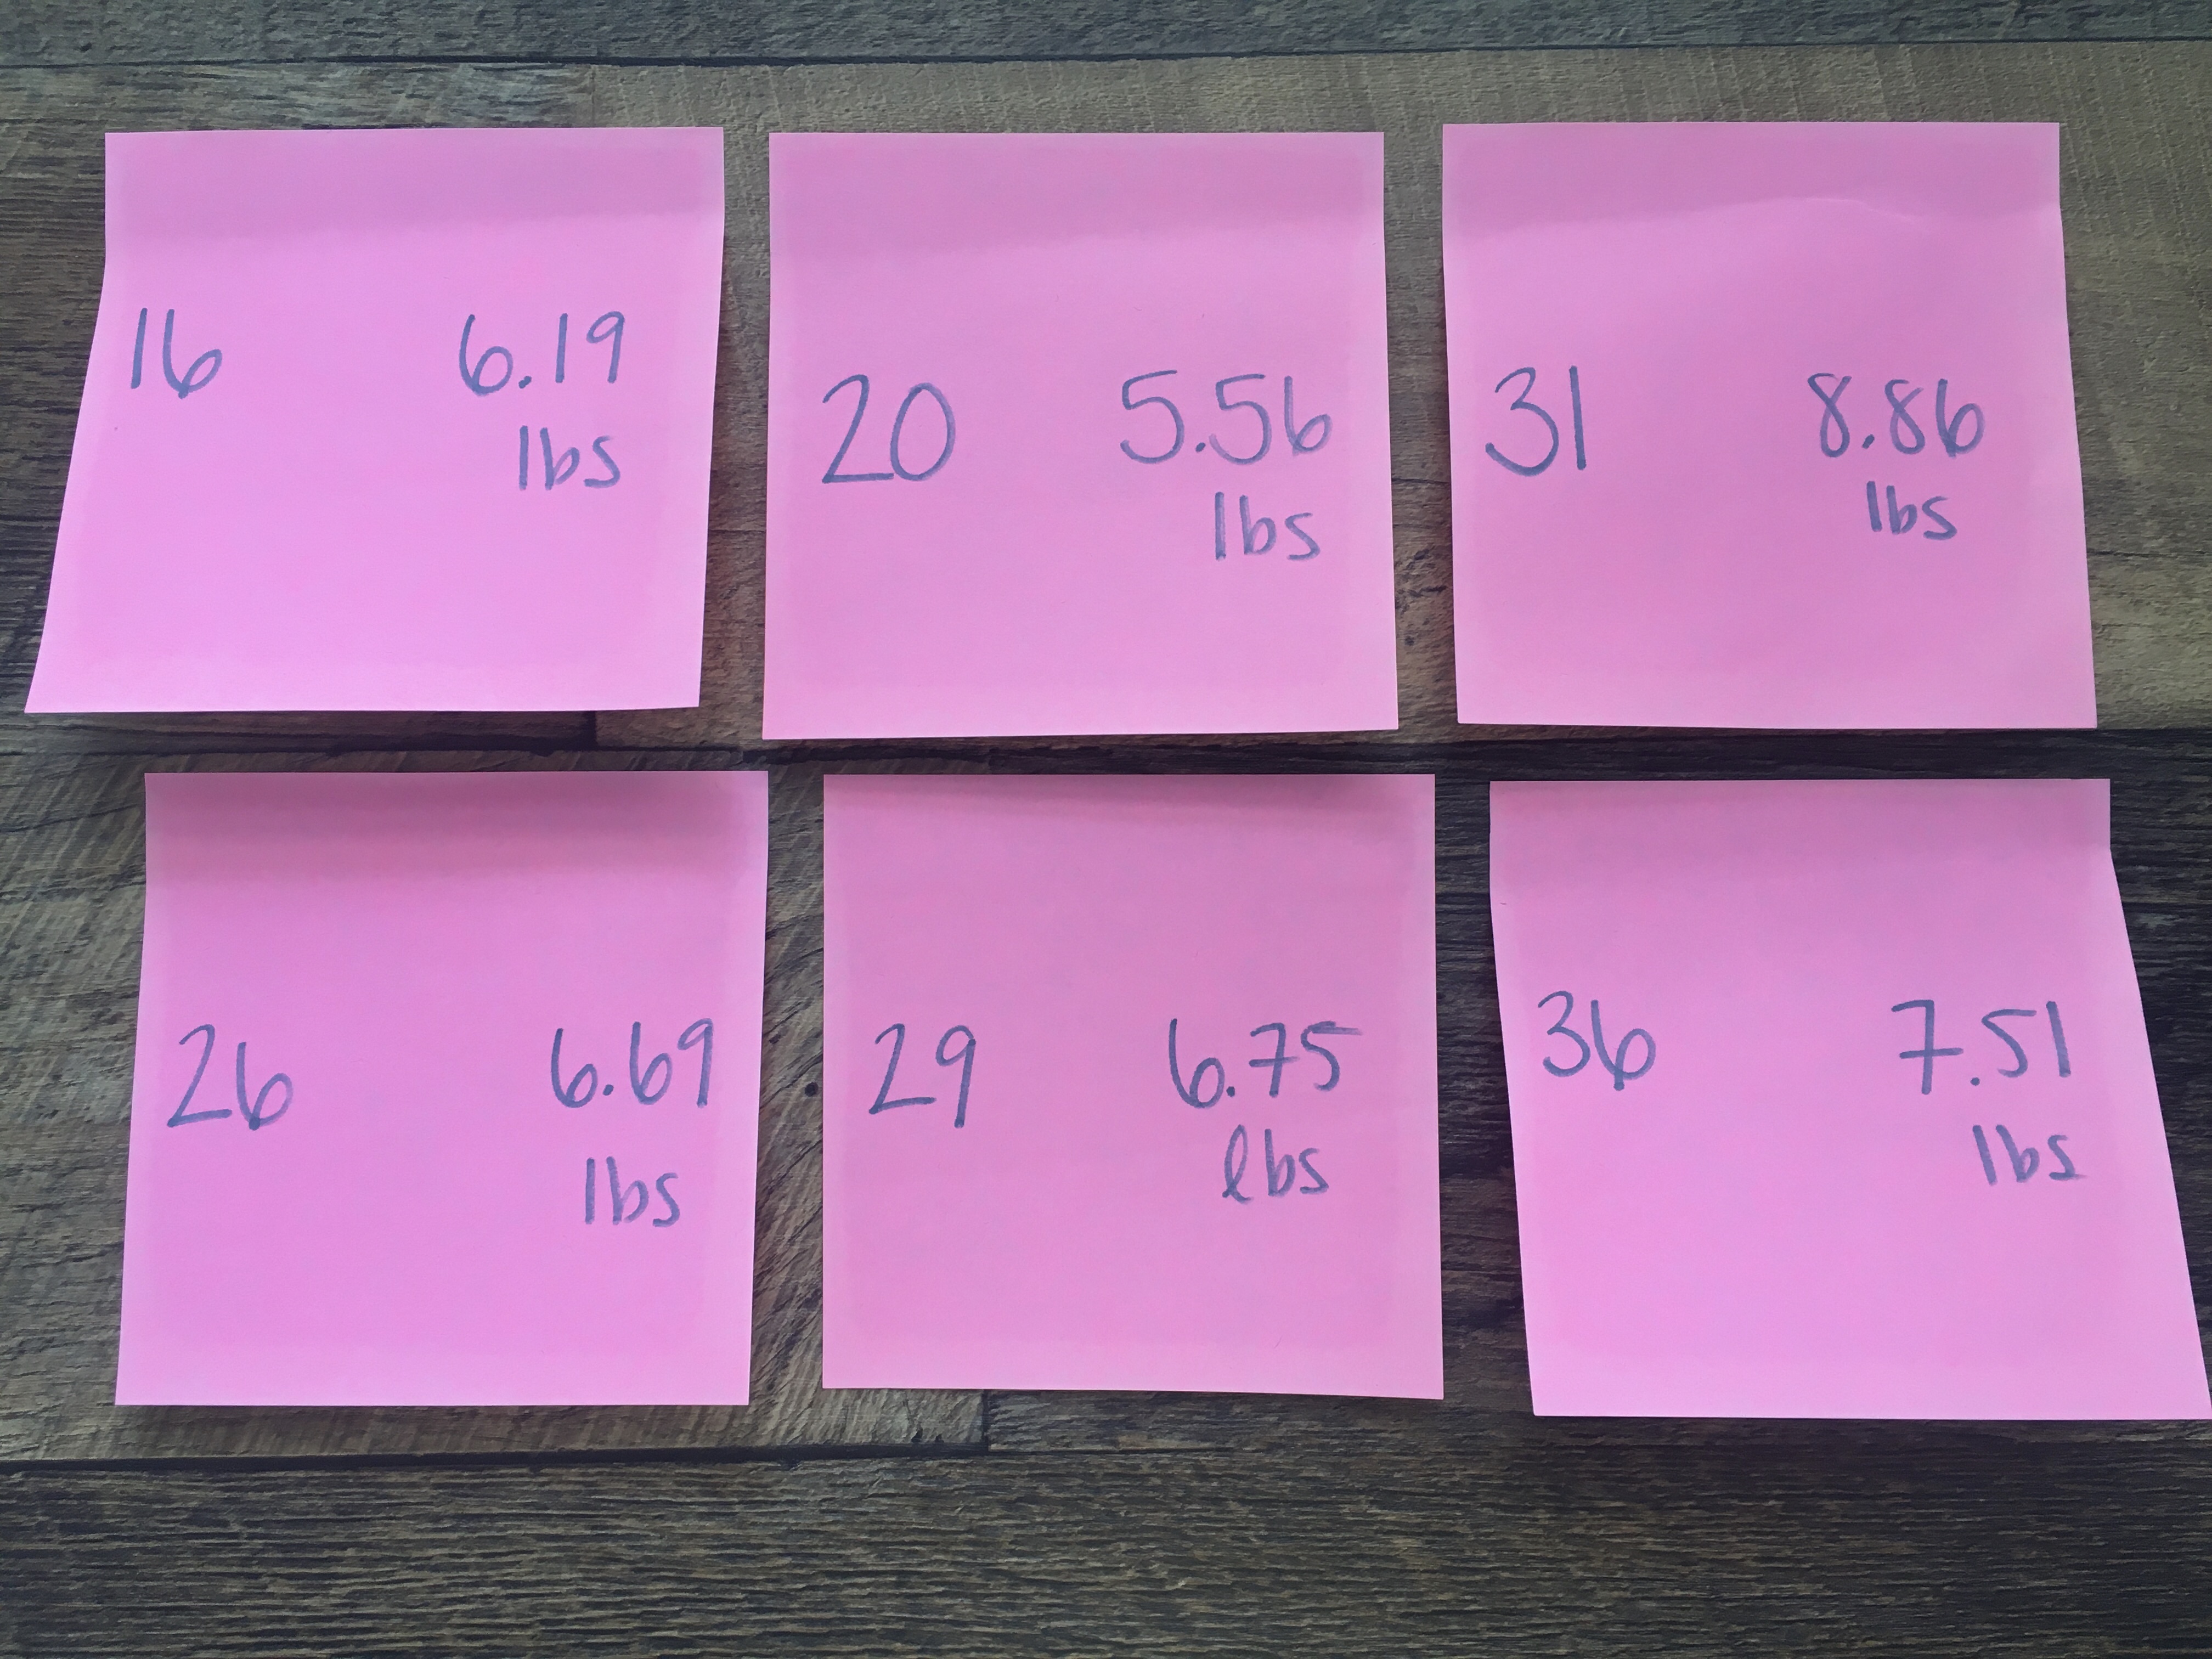 16 6.19
lbs
20 5.56
lbs
31 8.86
lbs
26 6.69
lbs
29 6.75
lbs
36 7.51
lbs